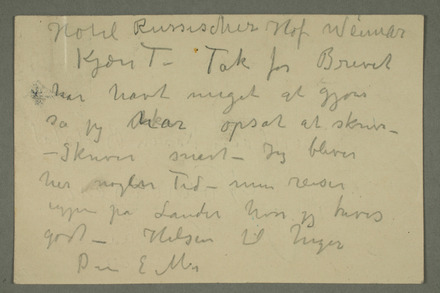 Hotel Russischer Hof Weimar
Kjære T – Tak for Brevet
har havt meget at gjøre
så jeg har opsat at skrive –
– Skriver snart – Jeg bliver
her nogen Tid – men reiser
igjen på Landet hvor jeg trives
godt – Hilsen til Inger
Din E M